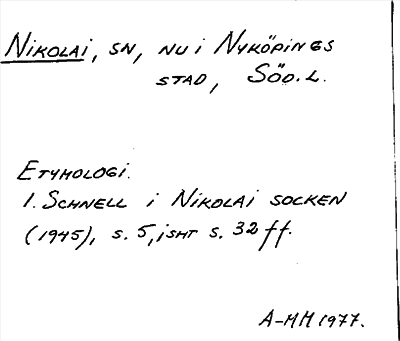 NIKOLAI, SN, NU I NYKÖPINGS
STAD, SÖD. L.
ETYMOLOGI.
I. SCHNELL I NIKOLAI SOCKEN
(1945), S. 5, ISHT S. 32 ff.
A-MM 1977.